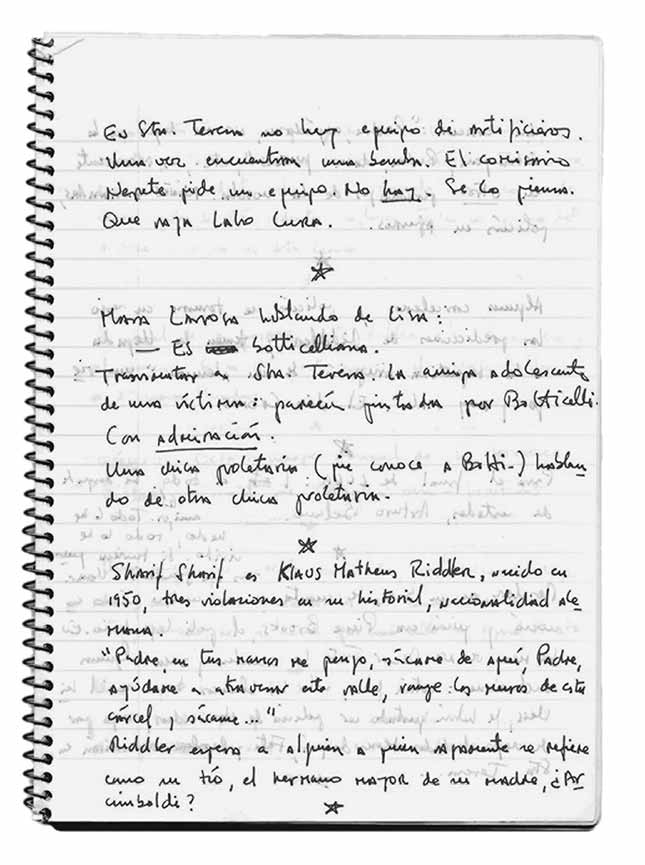 En Sta. Teresa no hay equipo de artificieros.
Una vez encuentran una bomba. El comisario
Negrete pide un equipo. No hay. Se lo piensa.
Que vaya Lalo Cura.
María hablando de Lisa:
— Es botticelliana.
Transmutar a Sta. Teresa. La amiga adolescente
de una víctima: parecía pintada por Botticelli.
Con admiración.
Una chica proletaria (que conoce a Botti-) hablan
do de otra chica proletaria.
Sharif Sharif es Klaus Matheus Riddler, nacido en
1950, tres violaciones en su historial, nacionalidad ale
mana.
"Padre, en tus manos me pongo, sácame de aquí, Padre,
ayúdame a atravesar este valle, rompe los muros de esta
cárcel y sácame..."
Riddler espera a alguien a quien vagamente se refiere
como su tío, el hermano mayor de su madre, ¿Ar
cimboldi?